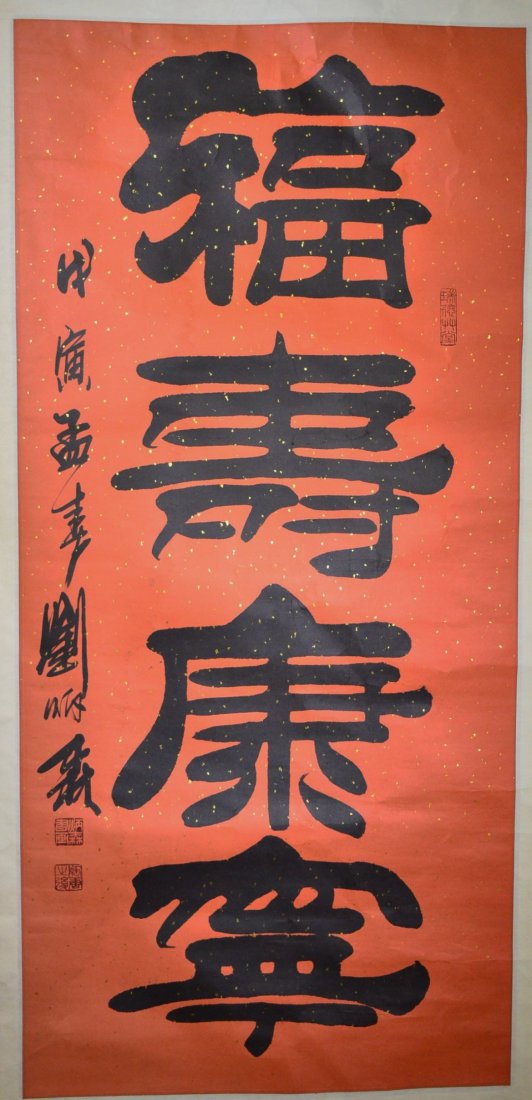 福壽康寧
甲寅孟春劉炳森